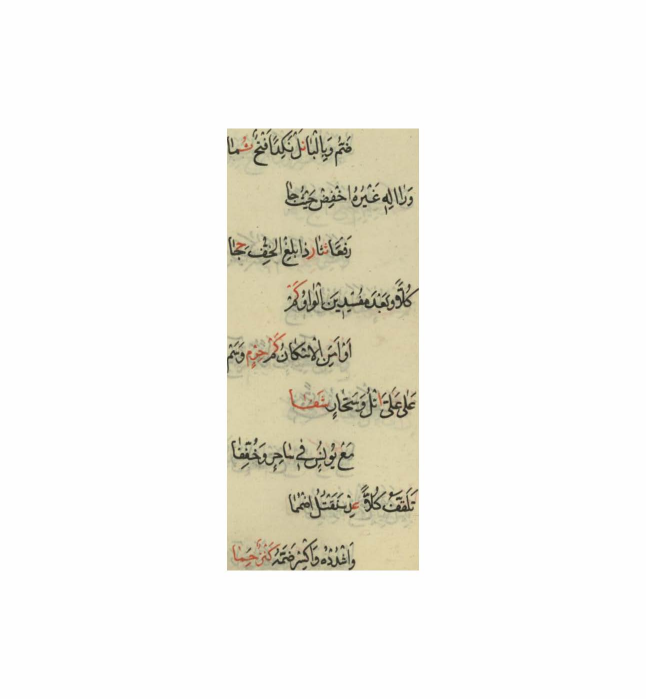 فثم وبالبا نل نكدا فتح ثما
ورا اله غيره اخفض حيث جا
رفعا ثنا رد ابلغ الخف حجا
كلا وبعد مفسدين الواو كم
او امن الاسكان كم حرم وسم
على علي اتل وسحار شفا
مع يونس في ساحر وخففا
تلقف كلا عد سنقتل اضمما
واشدده واكسر ضمه كنز حما